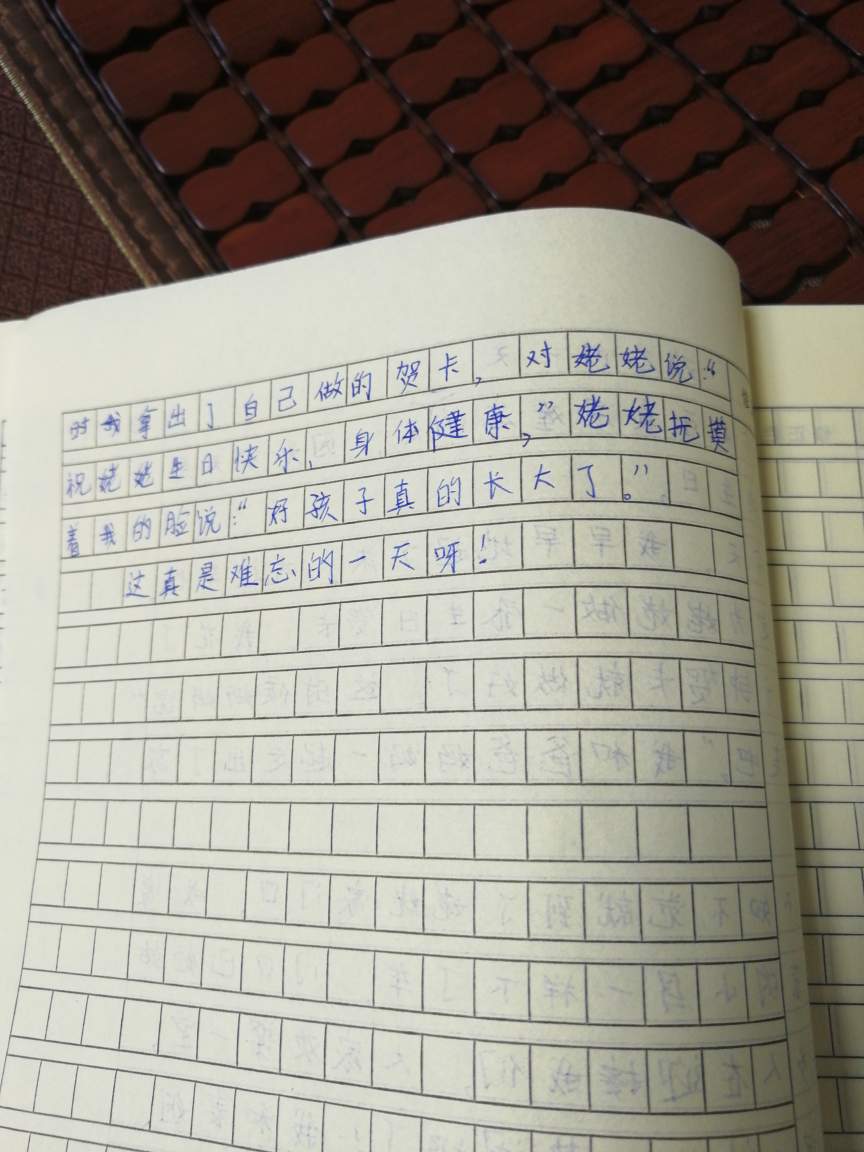 时我拿出了自己做的贺卡，对姥姥说：“
祝姥姥生日快乐，身体健康，”姥姥抚摸
着我的脸说：“好孩子真的长大了。”
这真是难忘的一天呀！